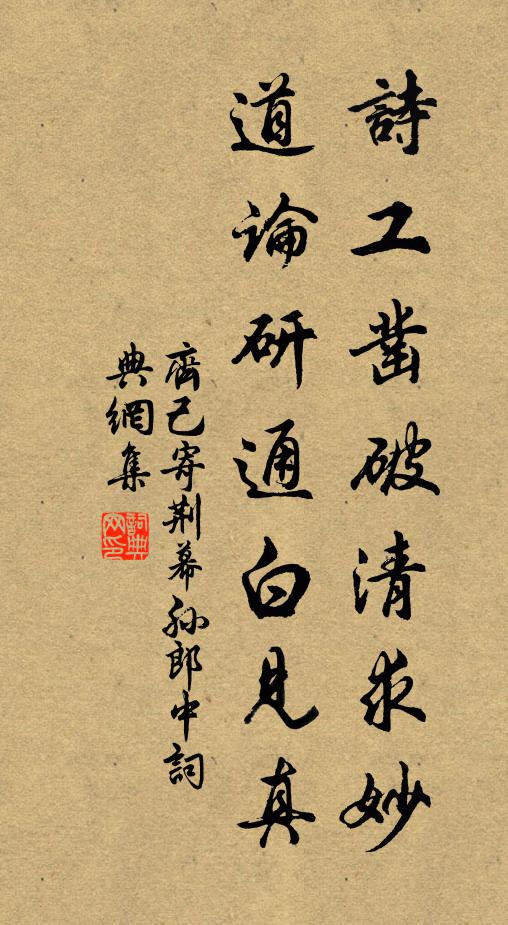 詩工鑿破清求妙
道論研通白見真
齊己寄荆幕孫郎中詞
典網集
詞典
网印